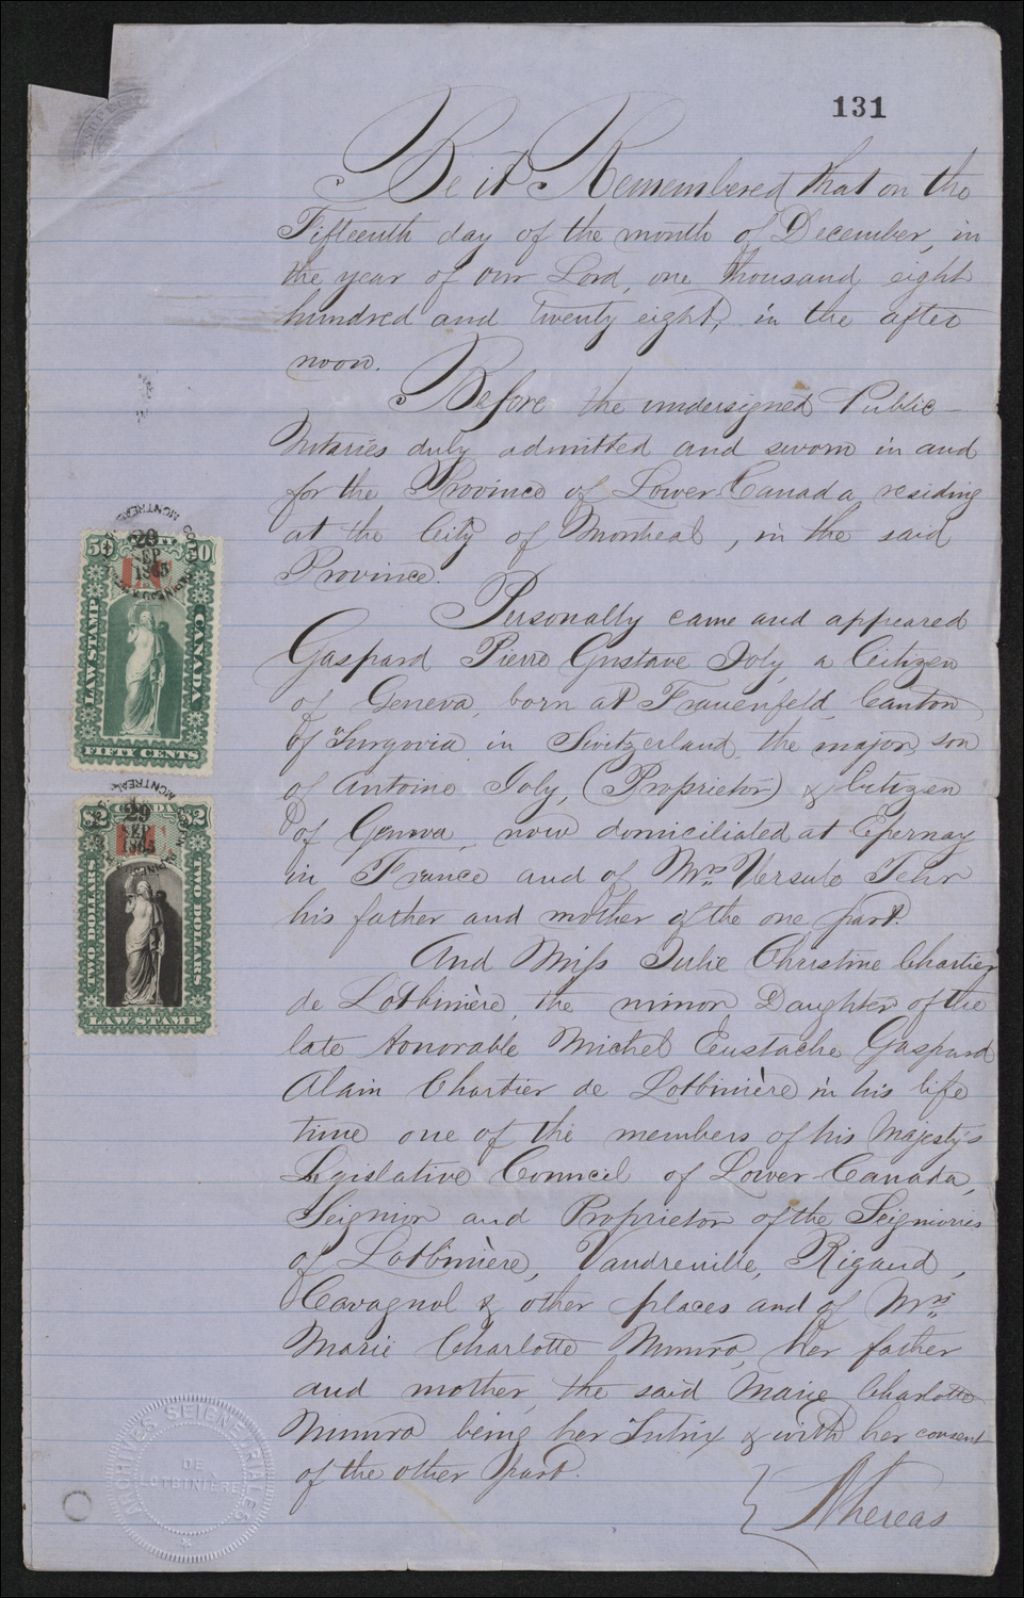 131
Be it Remembered that on the
Fifteenth day of the month of December, in
the year of our Lord, one thousand eight
hundred and twenty eight, in the after
noon.
Before the undersigned Public
Notaries duly admitted and sworn in and
for the Province of Lower Canada residing
at the City of Montreal, in the said
Province.
Personally came and appeared
Gaspard Pierre Gustave Joly, a Citizen
of Geneva, born at Frauenfeld, Canton
of Turgovia in Switzerland, the major son
of Antoine Joly, (Proprietor) & Citizen
of Geneva, now domiciliated at Epernay
in France and of Mrs Ursule Fehr
his father and mother of the one part.
And Miss Julie Christine Chartier
de Lotbinière, the minor Daughter of the
late Honorable Michel Eustache Gaspard
Alain Chartier de Lotbinière in his life
time one of the members of his Majesty's
Legislative Council of Lower Canada,
Seignior and Proprietor of the Seigniories
of Lotbinière, Vaudreuille, Rigaud,
Cavagnol & other places and of Mrs
Marie Charlotte Munro, her father
and mother, the said Marie Charlotte
Munro being her Tutrix & with her consent
of the other part.
Whereas
50 30
29
SEP
1865
MONTREAL
LC
LAW STAMP
CANADA
FIFTY CENTS
$2 CANADA $2
29
SEP
1865
MONTREAL
TWO DOLLARS
TWO DOLLARS
LAW STAMP
ARCHIVES SEIGNEURIALES
DE
LOTBINIÈRE